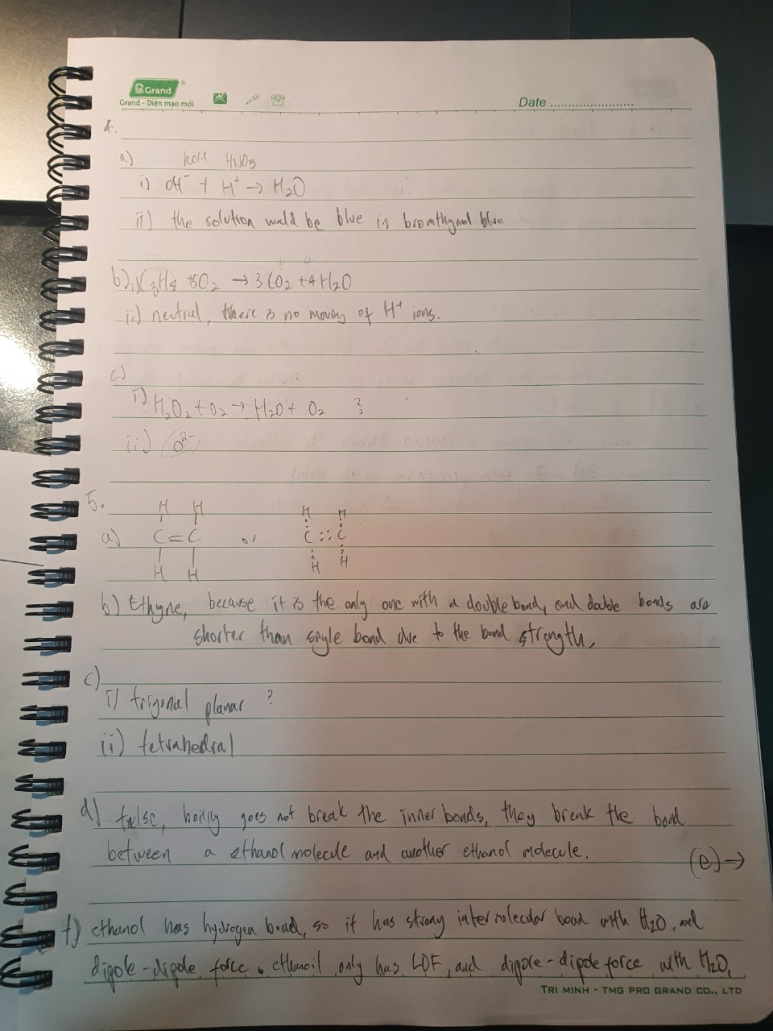 Grand
Grand - Diện mạo mới
Date ........................
4.
a) KOH HNO3
i) OH⁻ + H⁺ → H2O
ii) the solution would be blue in bromthymol blue
b) i) C3H8 + 5O2 → 3CO2 + 4H2O
ii) neutral, there is no moving of H⁺ ions.
c)
i) H2O2 + O2 → H2O + O2 ?
ii) O²⁻
5.
H H
a) C=C or C::C
H H
b) Ethyne, because it is the only one with a double bond, and double bonds are
shorter than single bond due to the bond strength.
c)
i) trigonal planar ?
ii) tetrahedral
d) false, boiling goes not break the inner bonds, they break the bond
between a ethanol molecule and another ethanol molecule.
(e) →
f) ethanol has hydrogen bond, so it has strong intermolecular bond with H2O, and
dipole-dipole force. only has LDF, and dipole-dipole force with H2O.
TRI MINH - TMG PRO GRAND CO., LTD